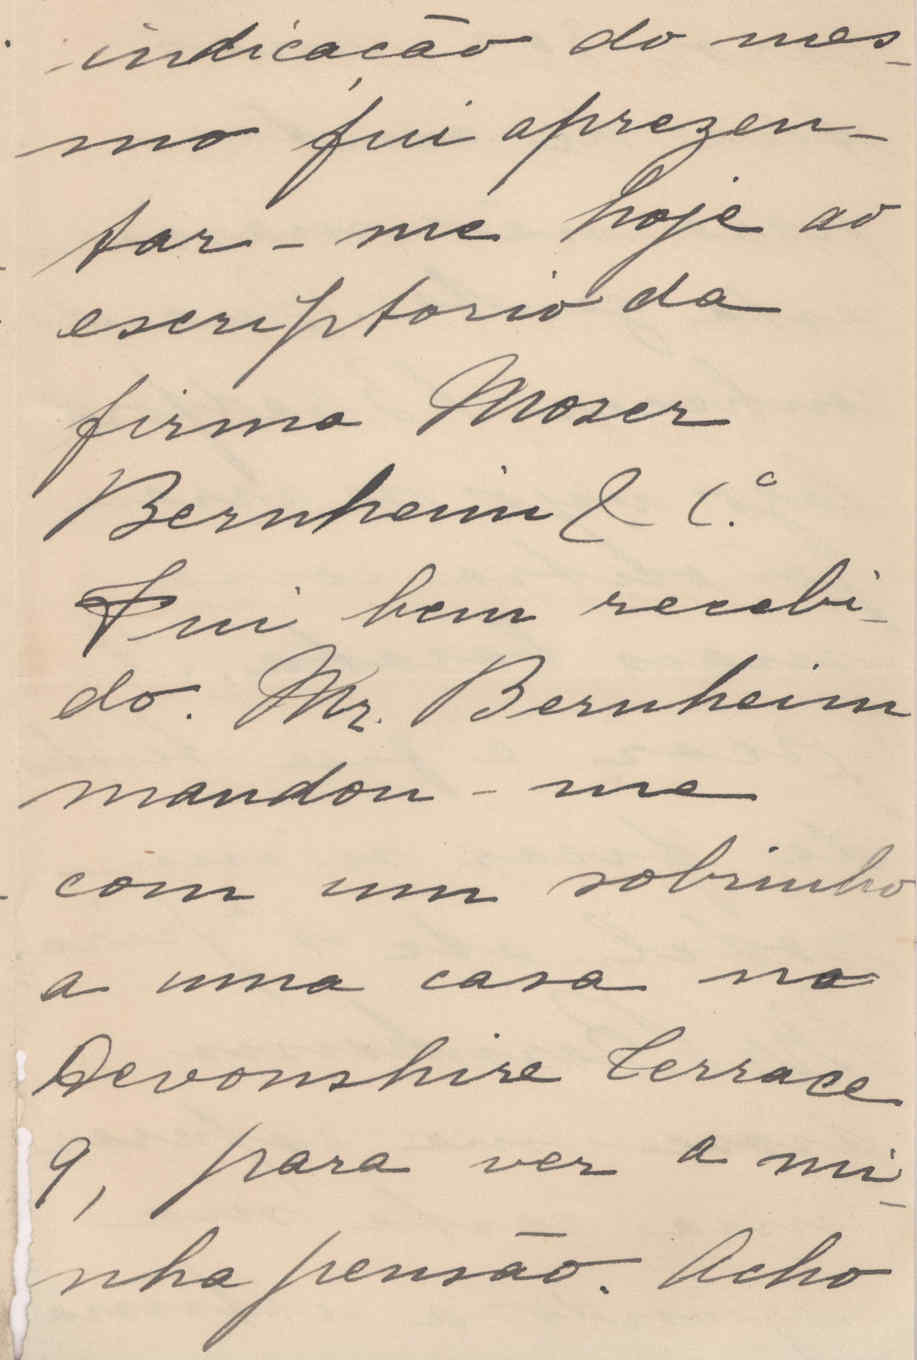 indicação do mes-
mo fui aprezen-
tar-me hoje ao
escriptorio da
firma Moser
Bernheim & C.ª
Fui bem recebi-
do. Mr. Bernheim
mandou-me
com um sobrinho
a uma casa na
Devonshire Terrace
9, para ver a mi-
nha pensão. Acho